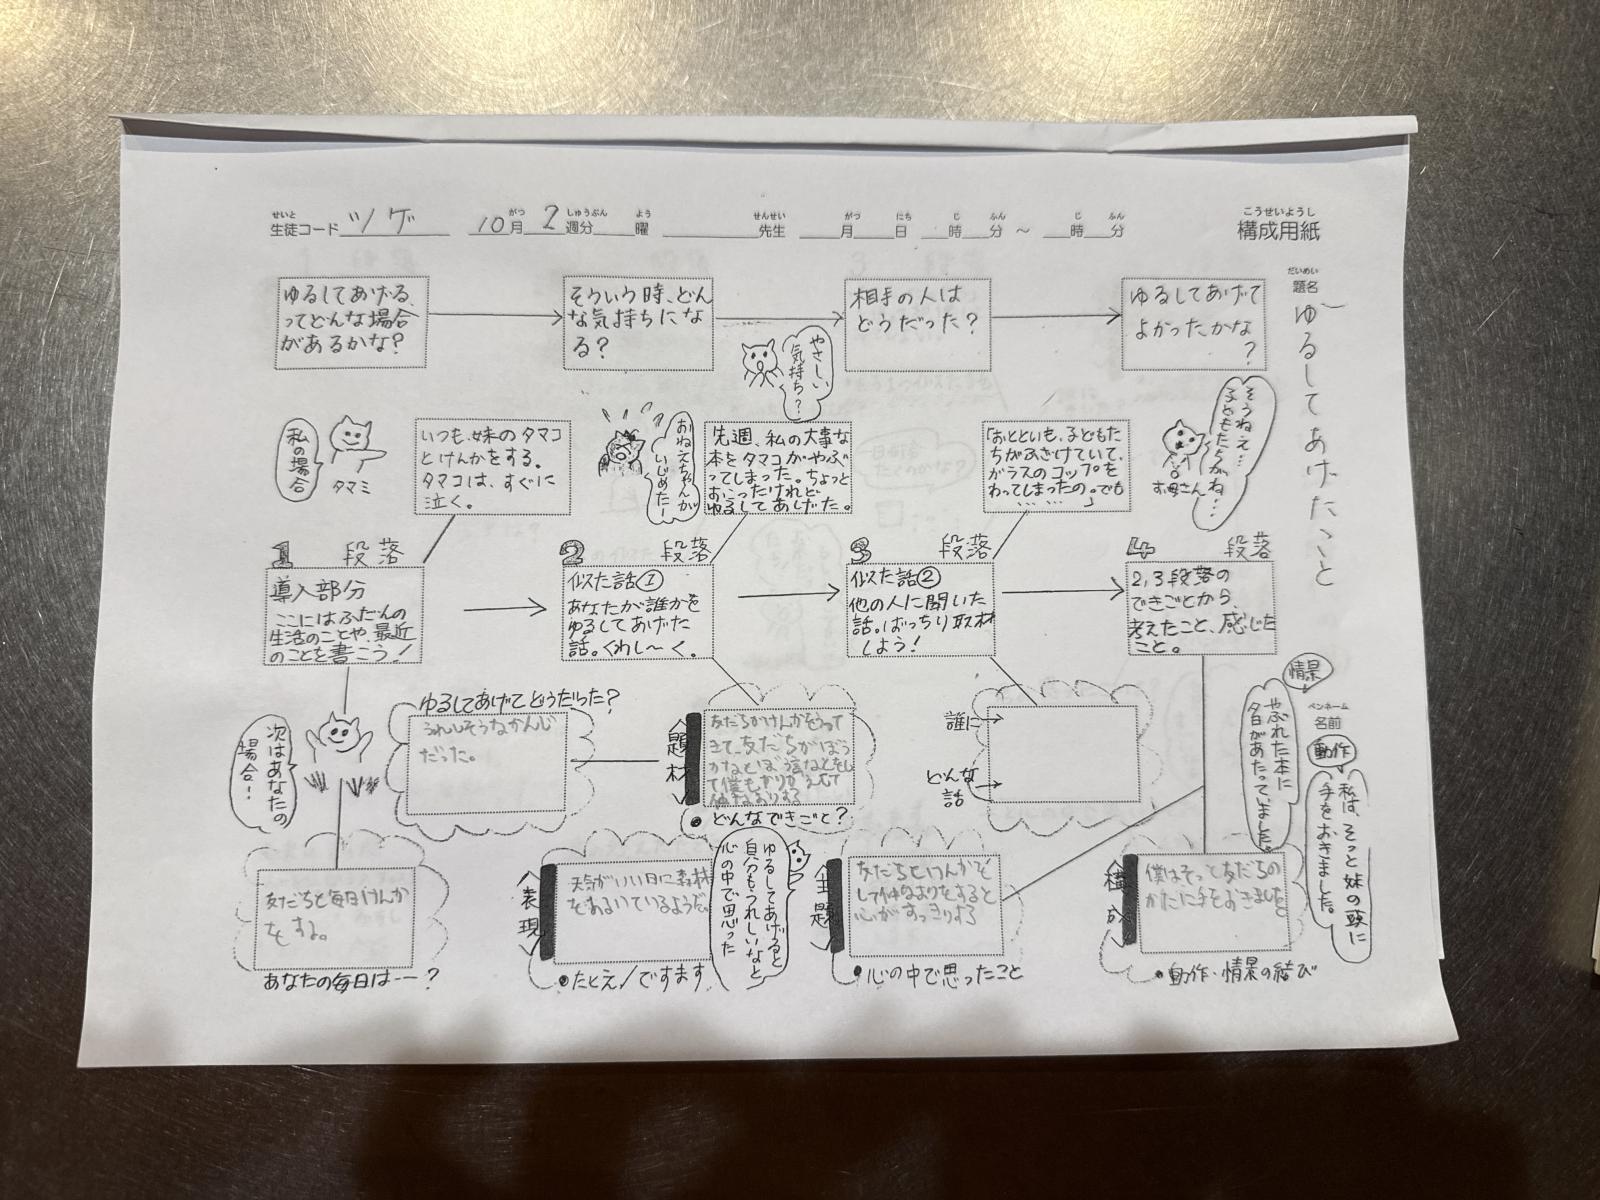 せいと
生徒コード ツゲ
がつ しゅうぶん よう
10月2週分 曜
せんせい
先生
がつ にち じ ふん じ ふん
月 日 時 分 ～ 時 分
こうせいようし
構成用紙
だいめい
題名
ゆるしてあげたこと
ゆるしてあげる、
ってどんな場合
があるかな?
そういう時、どん
な気持ちにな
る?
相手の人は
どうだった?
ゆるしてあげて
よかったかな
?
やさしい
気持ち?
私の場合
タマミ
いつも、妹のタマコ
とけんかをする。
タマコは、すぐに
泣く。
おねえちゃんが
いじめたー
先週、私の大事な
本をタマコがやぶ
ってしまった。ちょっと
おこったけれど
ゆるしてあげた。
「おとといも、子どもた
ちがふざけていて、
ガラスのコップを
わってしまったの。でも
……」
お母さん
そうねえ…
子どもたちがね…
1 段落
導入部分
ここにはふだんの
生活のことや、最近
のことを書こう!
2 段落
似た話①
あなたが誰かを
ゆるしてあげた
話。くわし〜く。
3 段落
似た話②
他の人に聞いた
話。ばっちり取材
しよう!
4 段落
2,3段落の
できごとから、
考えたこと、感じた
こと。
次はあなたの
場合!
ゆるしてあげてどうだった?
うれしそうなかんじ
だった。
題材
友だちがけんかをうって
きて、友だちがぼう
仲なおりする
どんなできごと?
誰に
どんな
話
情景
やぶれた本に
夕日があたっていました。
ペンネーム
名前
動作
私は、そっと妹の頭に
手をおきました。
友だちと毎日けんか
をする。
あなたの毎日は…?
表現
天気がいい日に森林
をあるいているようだ
たとえ/ですます
ゆるしてあげると
自分も、うれしいなと
心の中で思った
主題
友だちとけんかを
して仲なおりをすると
心がすっきりする
心の中で思ったこと
構成
僕はそっと友だちの
かたに手をおきました
動作・情景の結び